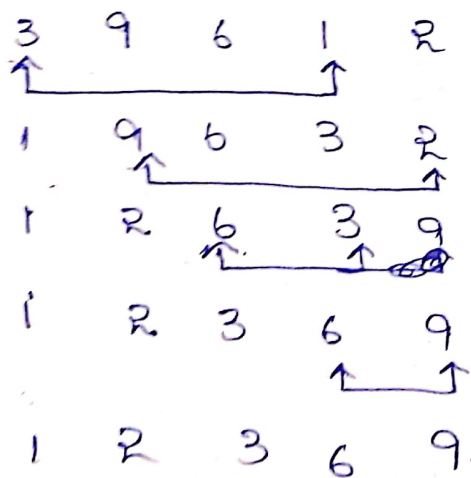 3 9 6 1 2
1 9 6 3 2
1 2 6 3 9
1 2 3 6 9
1 2 3 6 9